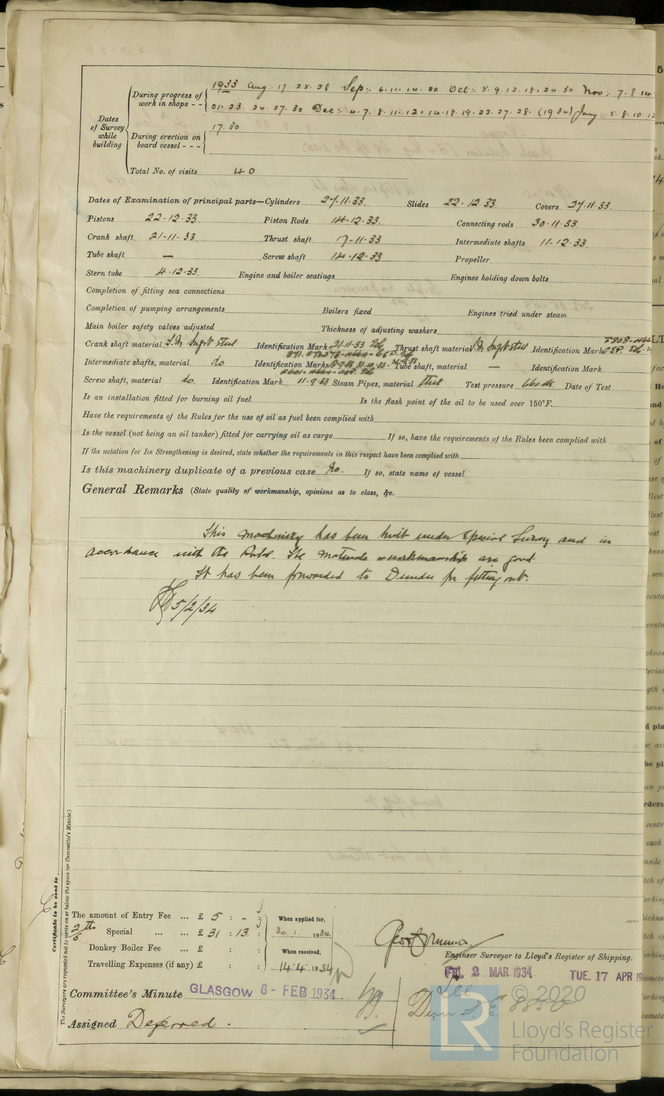 1933 Aug: 17. 25. 28 Sep: 6. 11. 14. 20 Oct: 5. 9. 12. 18. 24. 30 Nov: 7. 8. 14.
During progress of work in shops - -
21. 23. 24. 27. 30 Dec: 4. 7. 8. 11. 12. 14. 18. 19. 22. 27. 28. (1934) Jany: 5. 8. 10. 12
Dates of Survey while building
During erection on board vessel - - -
17. 30
Total No. of visits 40
Dates of Examination of principal parts—Cylinders 27.11.33. Slides 22.12.33. Covers 27.11.33
Pistons 22.12.33. Piston Rods 14.12.33. Connecting rods 30.11.33.
Crank shaft 21.11.33. Thrust shaft 17.11.33 Intermediate shafts 11.12.33.
Tube shaft — Screw shaft 14.12.33 Propeller
Stern tube 4.12.33. Engine and boiler seatings Engines holding down bolts
Completion of fitting sea connections
Completion of pumping arrangements Boilers fixed Engines tried under steam
Main boiler safety valves adjusted Thickness of adjusting washers
Crank shaft material S.M. Ingot Steel Identification Mark 21.11.33 Thrust shaft material S.M. Ingot Steel Identification Mark
Intermediate shafts, material do Identification Marks Tube shaft, material — Identification Mark
Screw shaft, material do. Identification Mark 11.9.33 Steam Pipes, material Steel Test pressure Date of Test
Is an installation fitted for burning oil fuel Is the flash point of the oil to be used over 150°F.
Have the requirements of the Rules for the use of oil as fuel been complied with
Is the vessel (not being an oil tanker) fitted for carrying oil as cargo If so, have the requirements of the Rules been complied with
If the notation for Ice Strengthening is desired, state whether the requirements in this respect have been complied with
Is this machinery duplicate of a previous case No. If so, state name of vessel
General Remarks (State quality of workmanship, opinions as to class, &c.
This machinery has been built under Special Survey and in
accordance with the Rules. The materials & workmanship are good
It has been forwarded to Dundee for fitting out.
5/2/34
Certificate to be sent to
The Surveyors are requested not to write on or below the space for Committee's Minute.
The amount of Entry Fee ... £ 5 : - : When applied for,
Special ... ... £ 31 : 13 : 30.1.1934
Donkey Boiler Fee ... £ : : When received,
Travelling Expenses (if any) £ : : 14.4.1934
Engineer Surveyor to Lloyd's Register of Shipping.
FRI. 2 MAR 1934 TUE. 17 APR
Committee's Minute GLASGOW 6 - FEB 1934
Assigned Deferred.
© 2020
Lloyd's Register
Foundation
LR